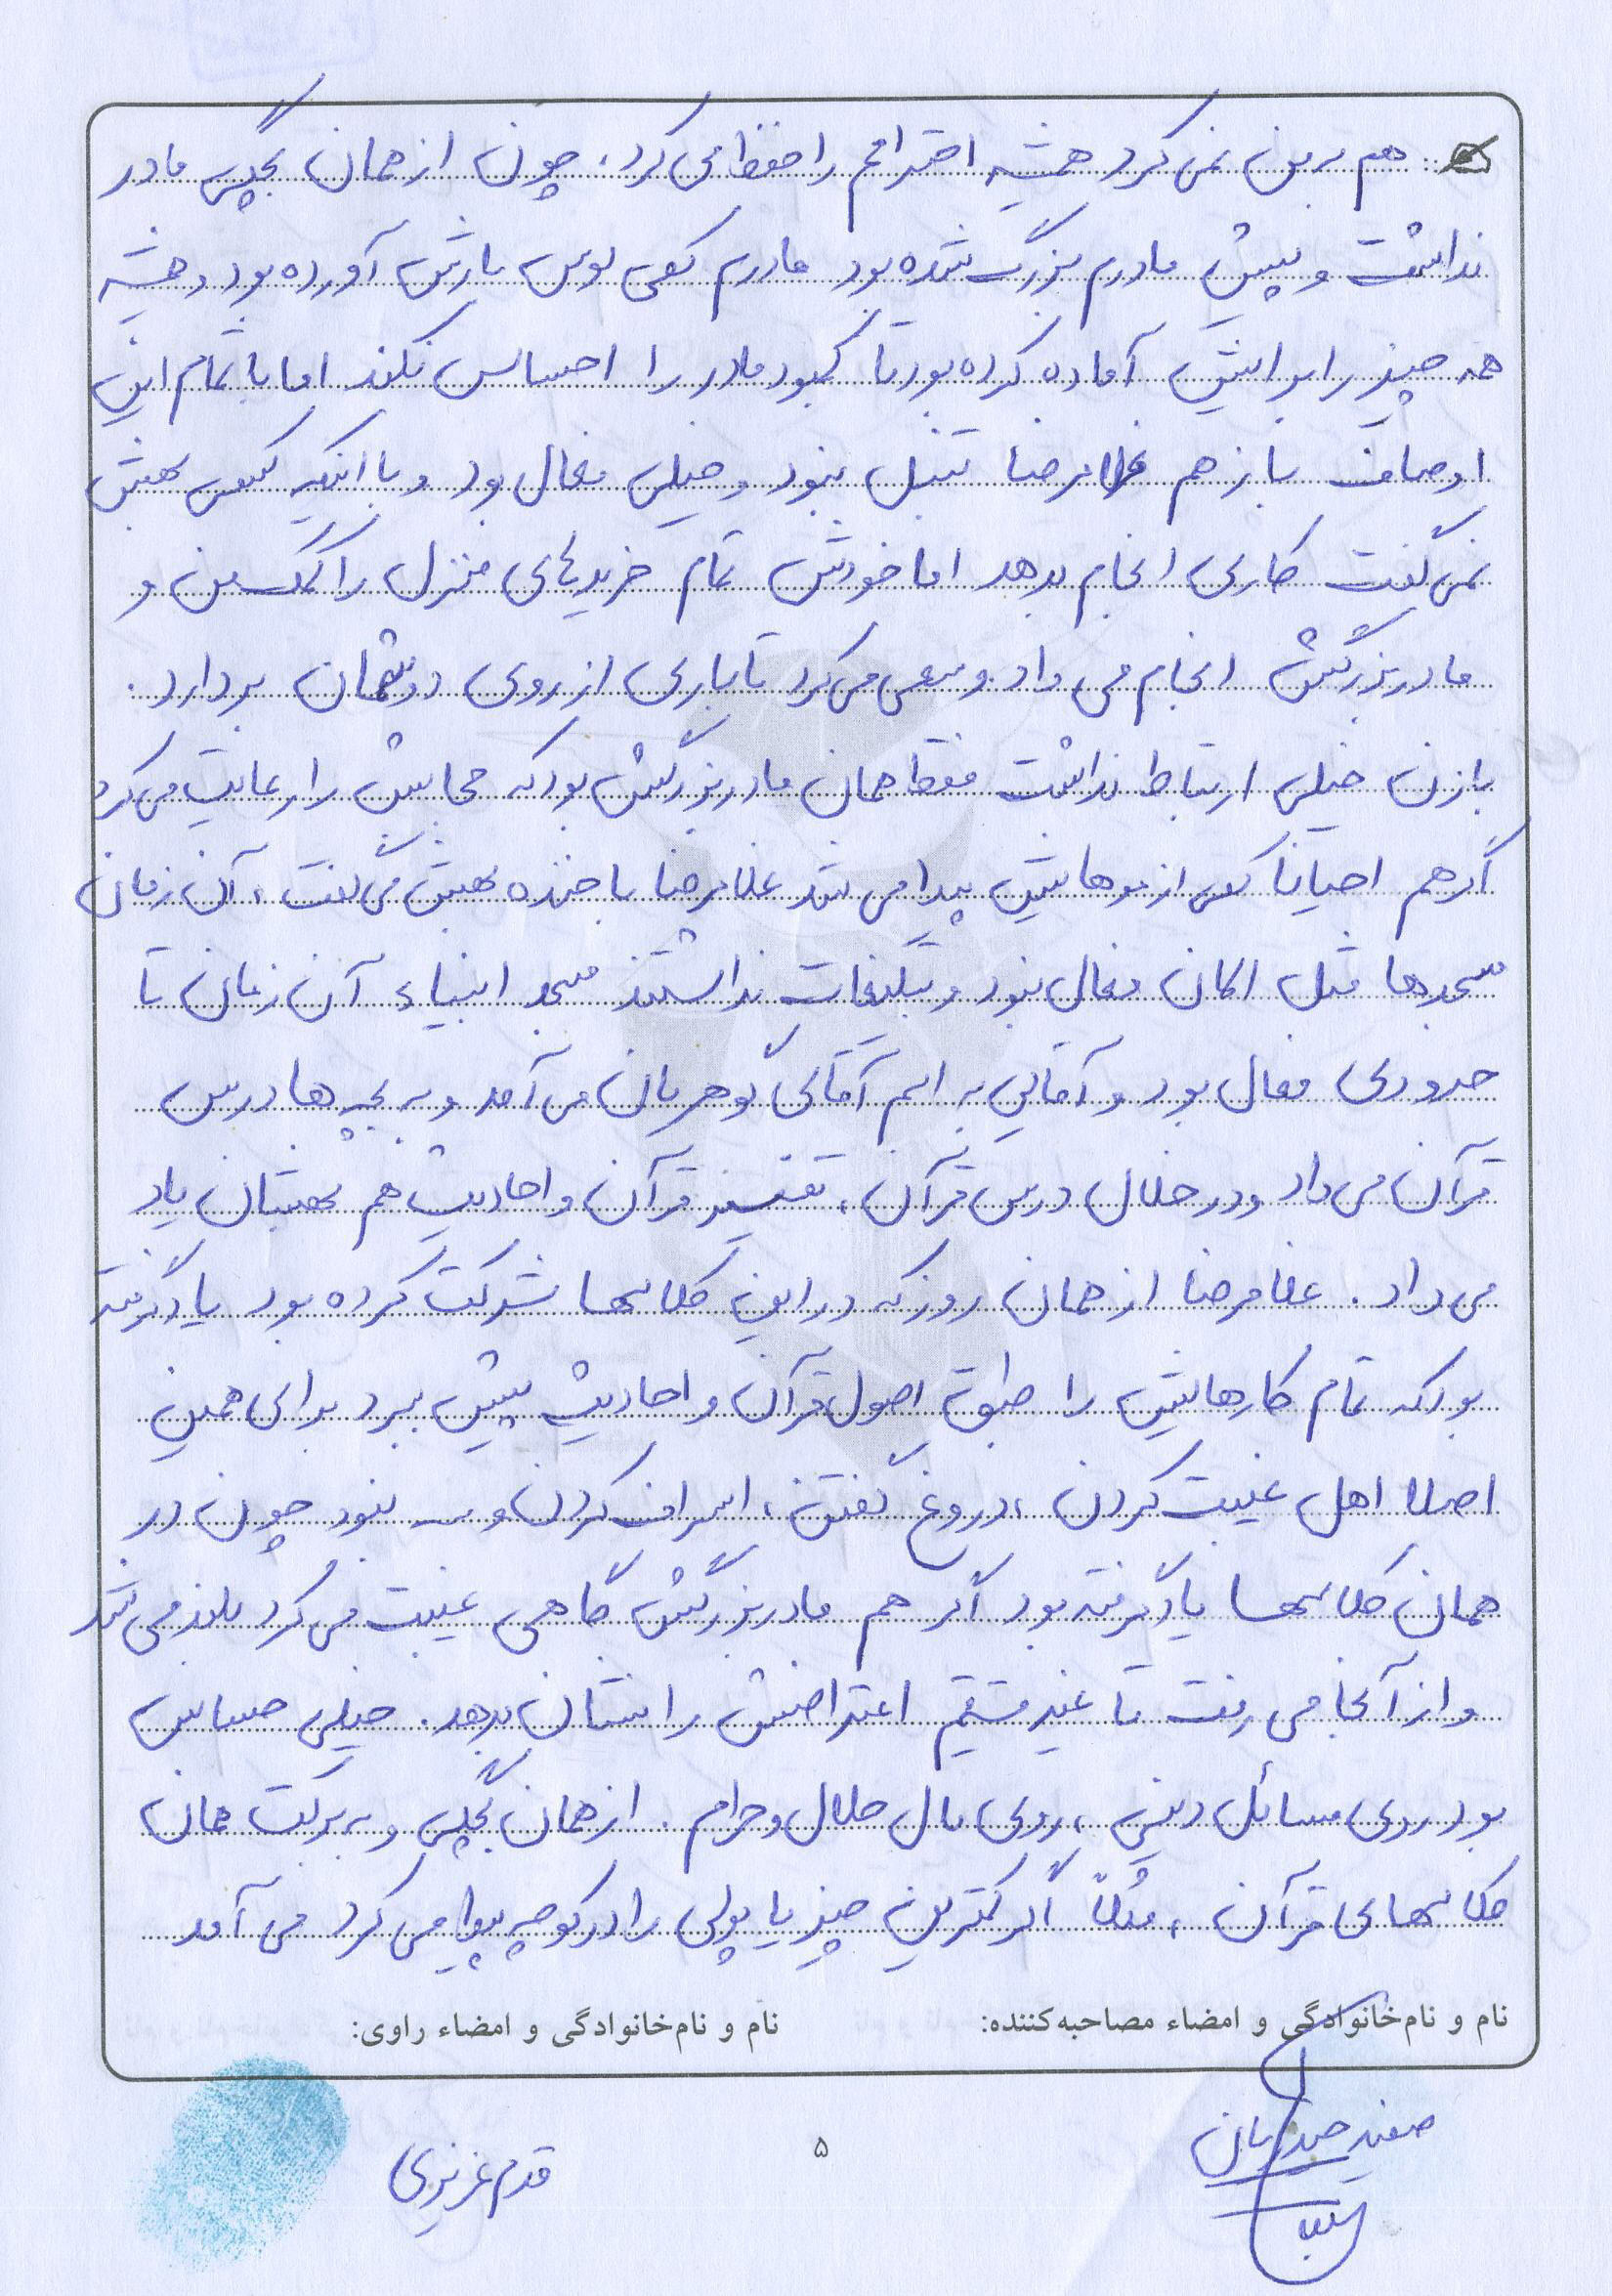 هم برمن نمی‌کرد همیشه احترامم را حفظ می‌کرد. چون از همان بچگی مادر
نداشت و پیش مادرم بزرگ شده بود مادرم کمی لوس بارش آورده بود و همیشه
همه چیز را برایش آماده کرده بود تا کمبود مادر را احساس نکند اما با تمام این
اوصاف باز هم غلامرضا تنبل نبود و خیلی فعال بود و با اینکه کسی بهش
نمی‌گفت کاری انجام بدهد اما خودش تمام خریدهای منزل را کمک من و
مادربزرگش انجام می‌داد و سعی می‌کرد تا باری از روی دوشمان بردارد.
با زن خیلی ارتباط نداشت فقط همان مادربزرگش بود که حجابش را رعایت می‌کرد
اگر هم احیاناً کمی از موهایش پیدا می‌شد غلامرضا با خنده بهش می‌گفت، آن زمان
مسجدها مثل الان فعال نبود و تبلیغات نداشتند مسجد انبیاء آن زمان تا
حدودی فعال بود و آقایی به اسم آقای گوهریان می‌آمد و به بچه‌ها درس
قرآن می‌داد و در خلال درس قرآن، تفسیر قرآن و احادیث هم بهشان یاد
می‌داد. غلامرضا از همان روز که در این کلاسها شرکت کرده بود یاد گرفته
بود که تمام کارهایش را طبق اصول قرآن و احادیث پیش ببرد برای همین
اصلا اهل غیبت کردن، دروغ گفتن، اسراف کردن و ... نبود چون در
همان کلاسها یاد گرفته بود اگر هم مادربزرگش گاهی غیبت می‌کرد بلند می‌شد
و از آنجا می‌رفت تا غیرمستقیم اعتراضش را نشان بدهد. خیلی حساس
بود روی مسائل دینی، روی مال حلال و حرام. از همان بچگی و به برکت همان
کلاسهای قرآن، مثلاً اگر کمترین چیز یا پولی را در کوچه پیدا می‌کرد می‌آمد
نام و نام‌خانوادگی و امضاء مصاحبه‌کننده: نام و نام‌خانوادگی و امضاء راوی:
قدم عزیزی
۵